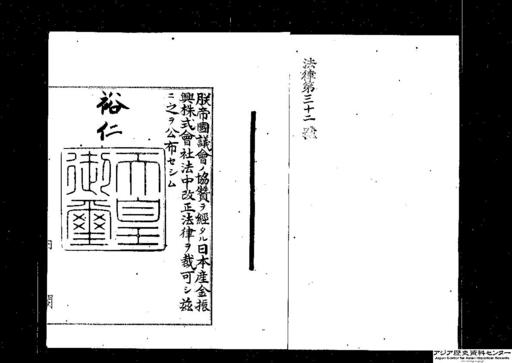 法律第三十二號
朕帝國議會ノ協贊ヲ經タル日本産金振
興株式會社法中改正法律ヲ裁可シ茲
ニ之ヲ公布セシム
裕仁
天皇
御璽
内閣
アジア歴史資料センター
Japan Center for Asian Historical Records